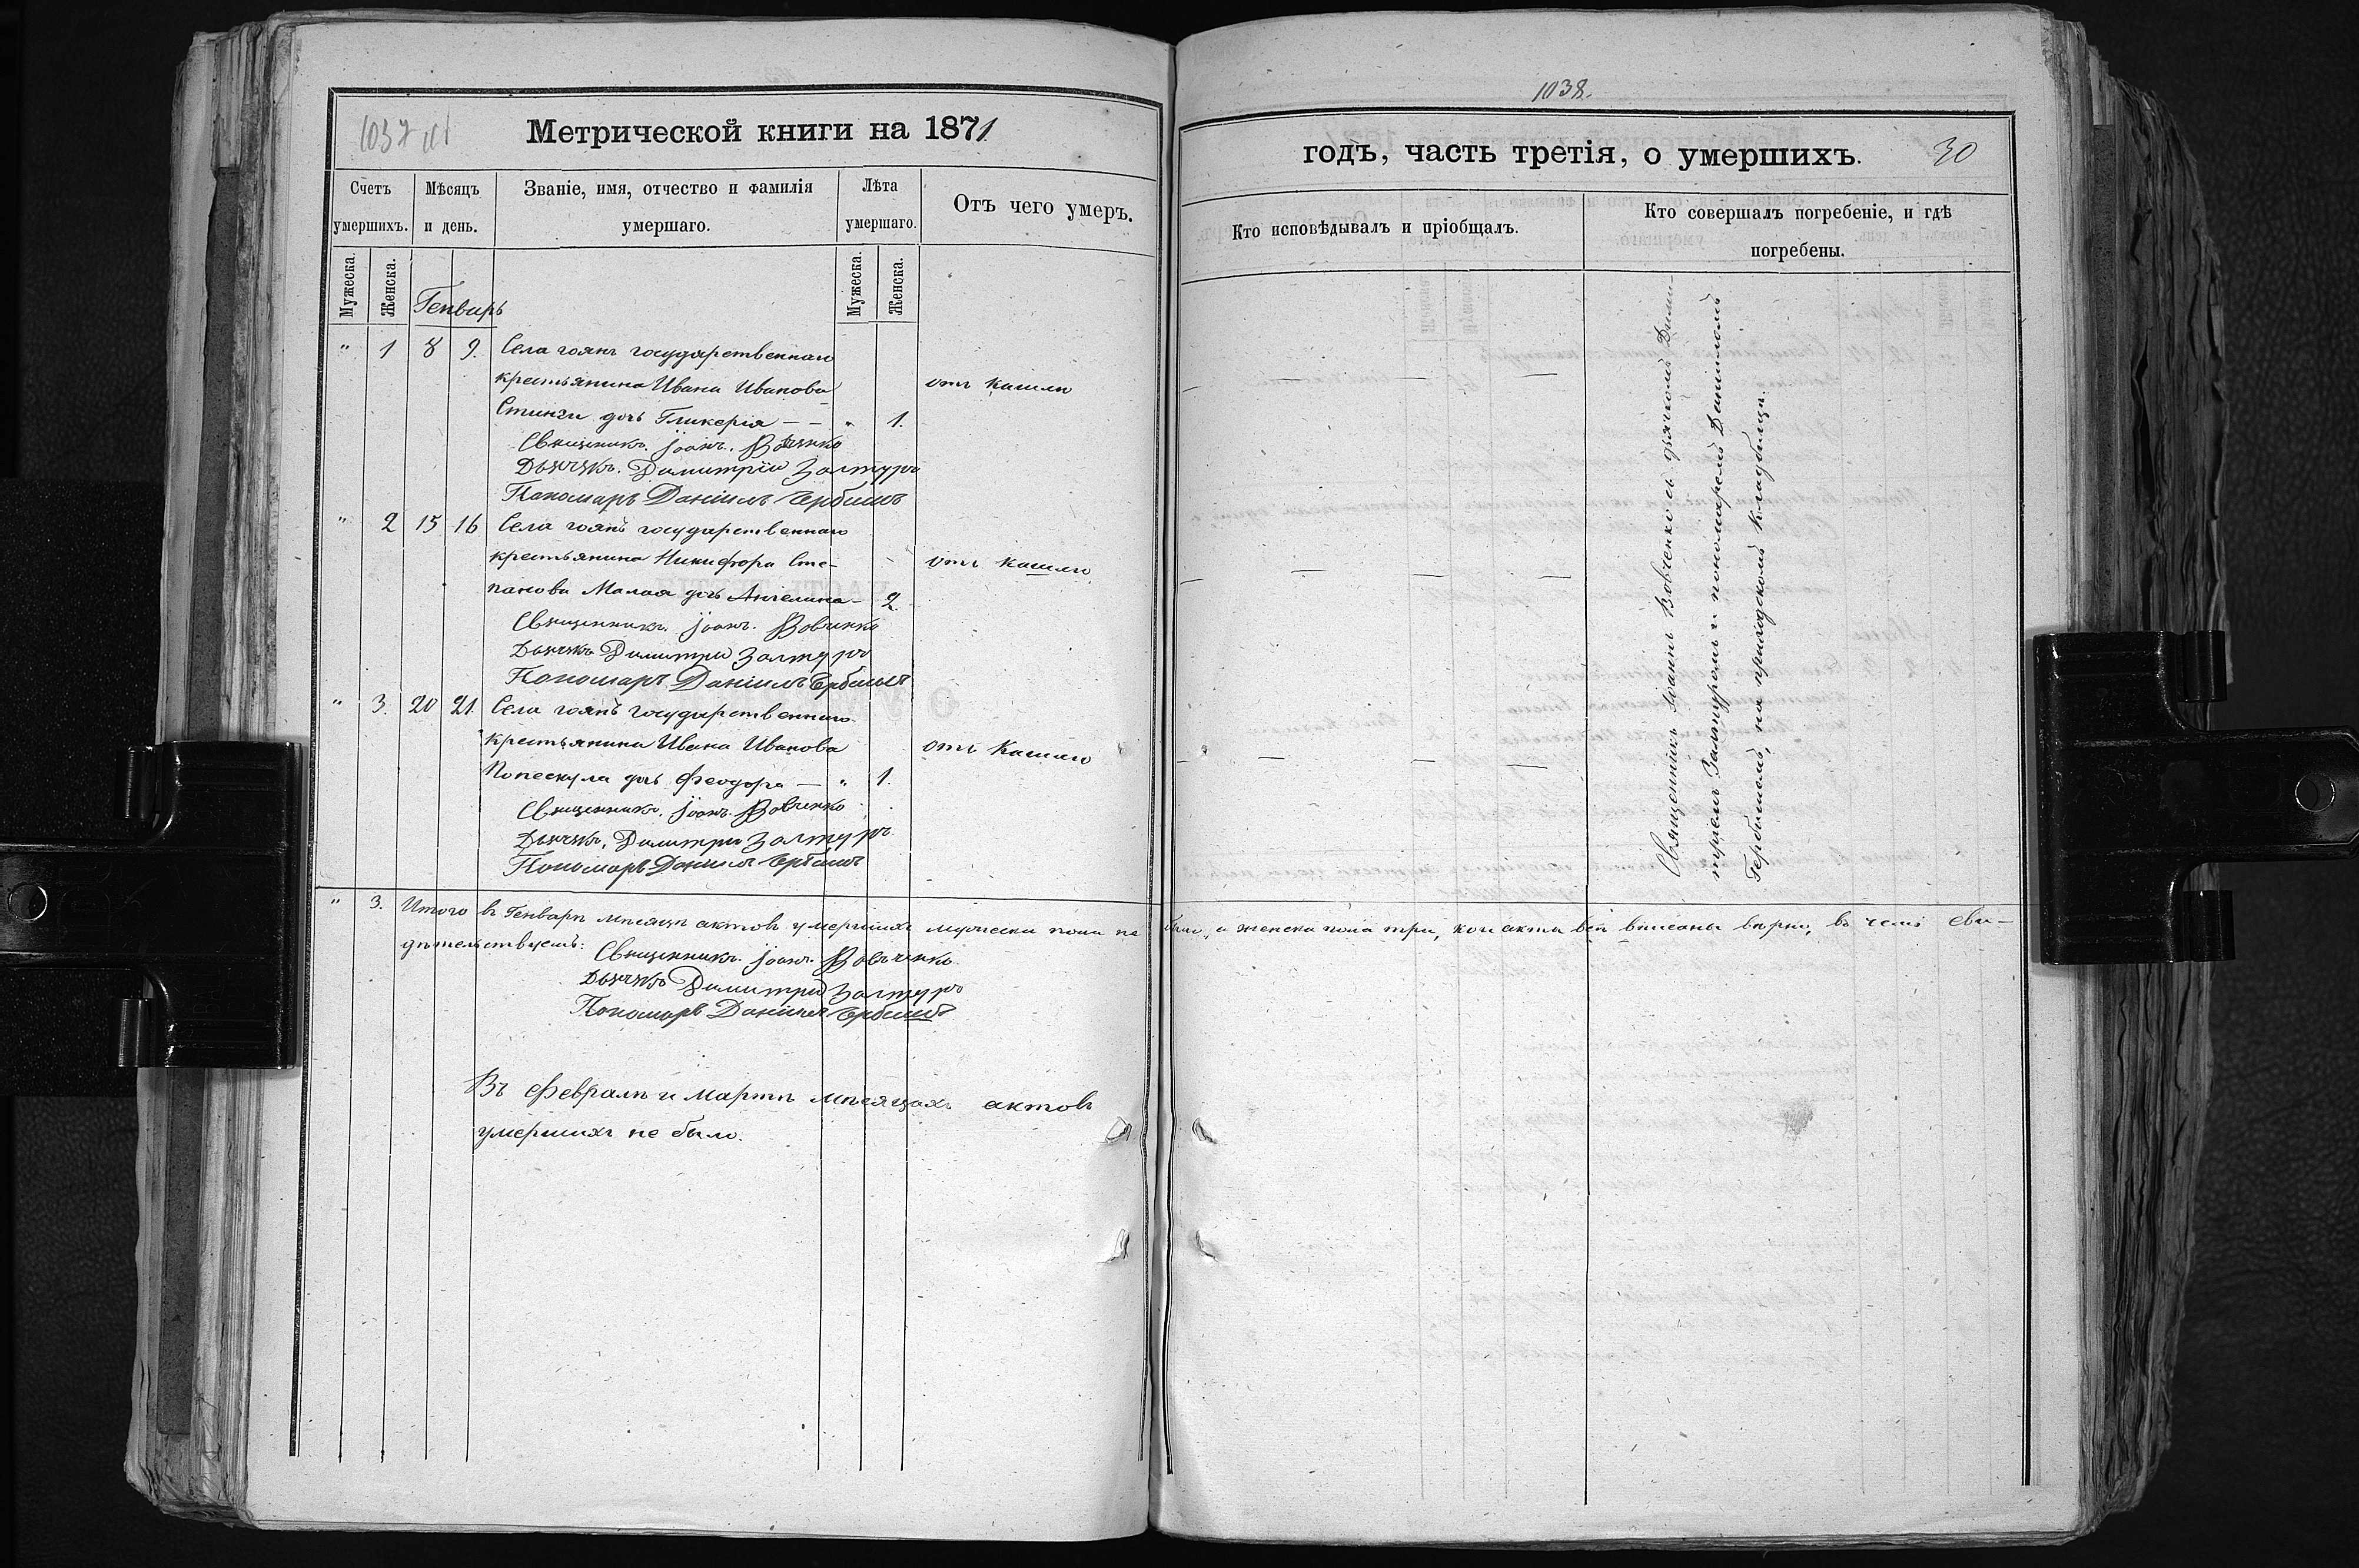 1037
Метрической книги на 1871
Счетъ умершихъ.
Мѣсяцъ и день.
Званіе, имя, отчество и фамилія умершаго.
Лѣта умершаго.
Отъ чего умеръ.
Мужеска.
Женска.
Мужеска.
Женска.
Генварь
" 1 8 9. Села гоянъ государственнаго
крестьянина Ивана Иванова отъ кашлю
Стинги дочь Гликерія — — " 1.
Священникъ Іоаннъ Вовченко
Дьячекъ Димитрій Залтуръ
Пономаръ Даніилъ Гербишъ
" 2 15 16 Села гоянъ государственнаго
крестьянина Никифора Сте- отъ кашлю
панова Малая дочь Ангелина — 2.
Священникъ Іоаннъ Вовченко
Дьячекъ Димитрій Залтуръ
Пономаръ Даніилъ Гербишъ
" 3. 20 21. Села гоянъ государственнаго
крестьянина Ивана Иванова отъ кашлю
Попескула дочь Феодора — " 1.
Священникъ Іоаннъ Вовченко
Дьячекъ Димитрій Залтуръ
Пономаръ Даніилъ Гербишъ
" 3. Итого въ Генварѣ мѣсяцѣ актовъ умершихъ мужеска пола не было, а женска пола три, кои акты всѣ вписаны вѣрно, въ чемъ сви-
дѣтельствуемъ:
Священникъ Іоаннъ Вовченко
Дьячекъ Димитрій Залтуръ
Пономаръ Даніилъ Гербишъ
Въ Февралѣ и Мартѣ мѣсяцахъ актовъ
умершихъ не было.
1038.
годъ, часть третія, о умершихъ.
30
Кто исповѣдывалъ и пріобщалъ.
Кто совершалъ погребеніе, и гдѣ погребены.
Священникъ Іоаннъ Вовченко съ дьячкомъ Дими-
тріемъ Залтуромъ и пономаремъ Даніиломъ
Гербишемъ, на приходскомъ кладбищѣ.